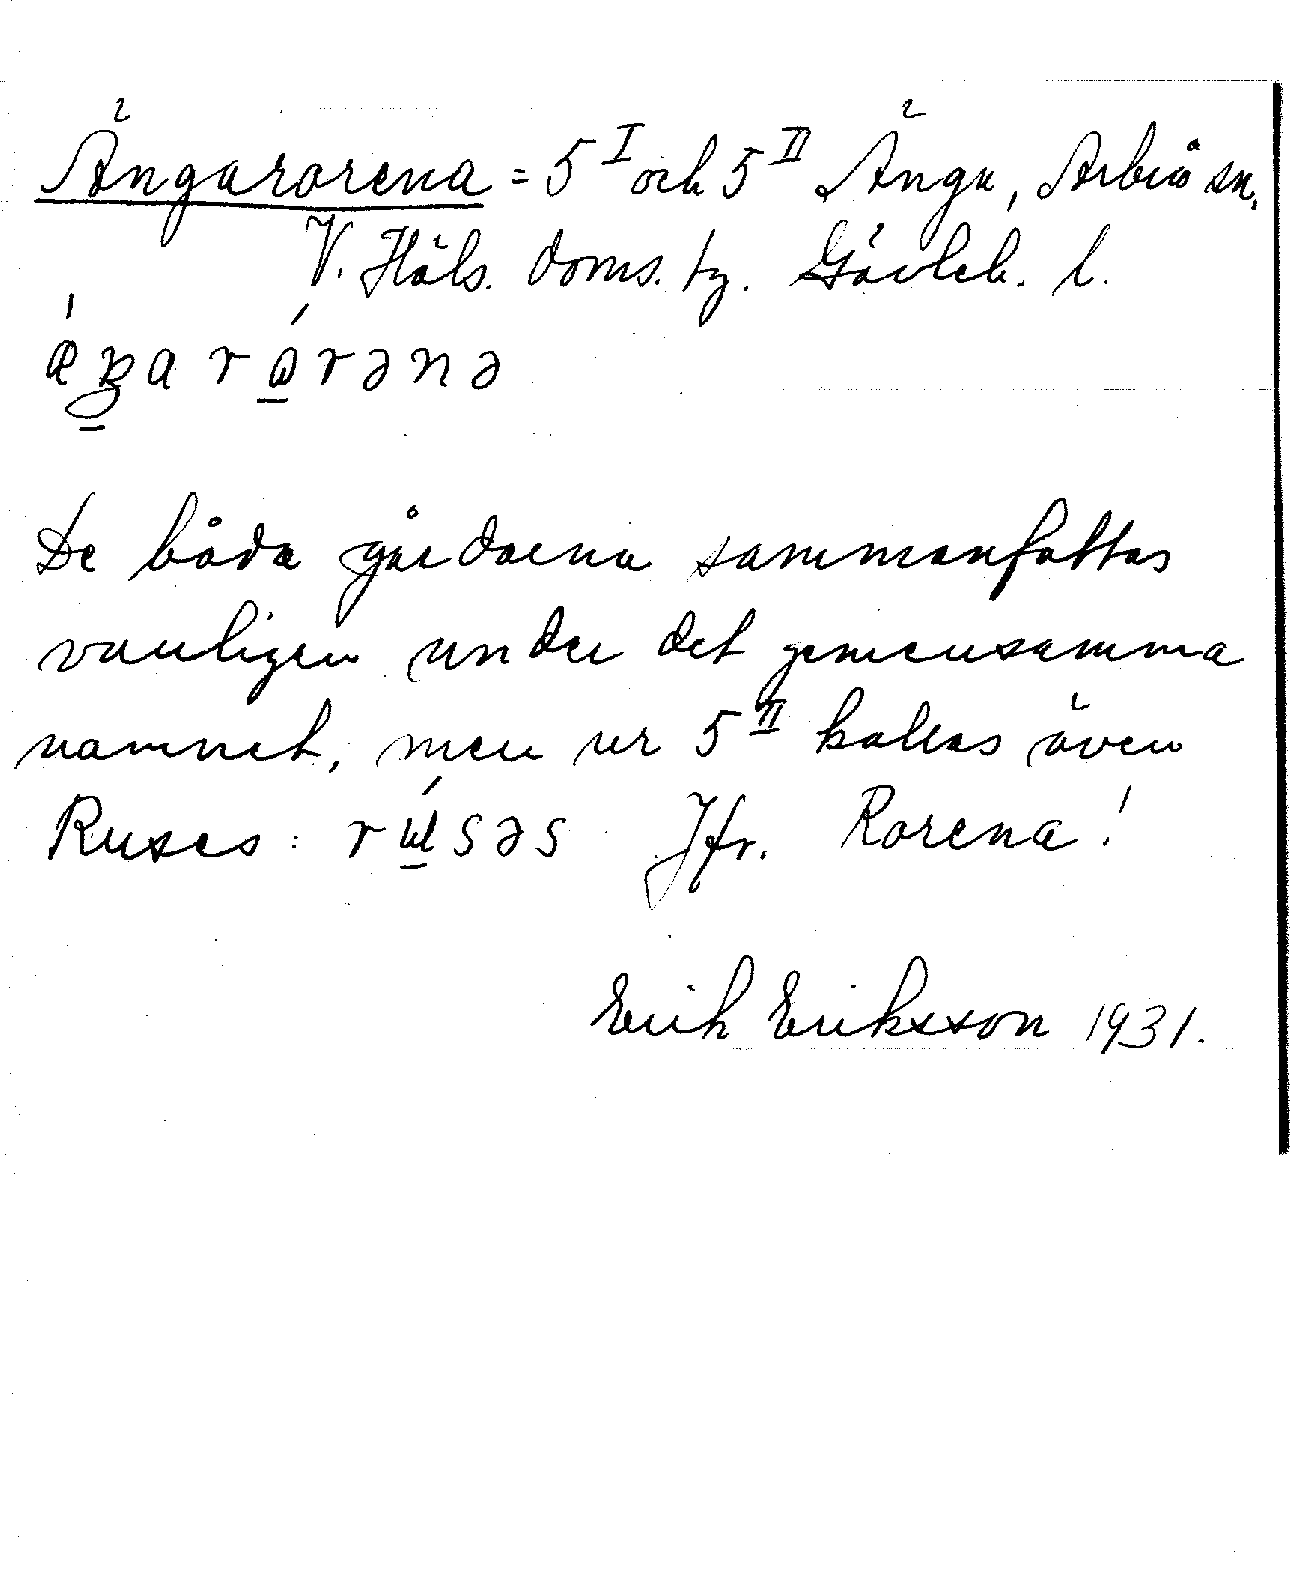 Ängarorena = 5 I och 5 II Änga, Arbrå sn.
V. Häls. doms. tg. Gävleb. l.
rərənə
De båda gårdarna sammanfattas
vanligen under det gemensamma
namnet, men nr 5 II kallas även
Ruses: Jfr. Rorena!
Erik Eriksson 1931.